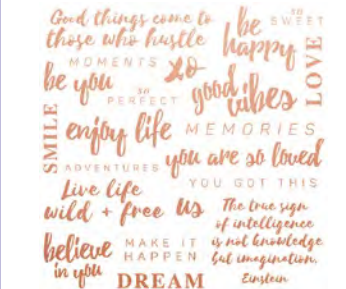 Good things come to
those who hustle
be
happy
so
SWEET
LOVE
MOMENTS
xo
be you
so
PERFECT
good
vibes
SMILE
enjoy life
MEMORIES
ADVENTURES
you are so loved
YOU GOT THIS
Live life
wild + free
us
The true sign
of intelligence
is not knowledge
but imagination.
Einstein
believe
in you
MAKE IT
HAPPEN
DREAM